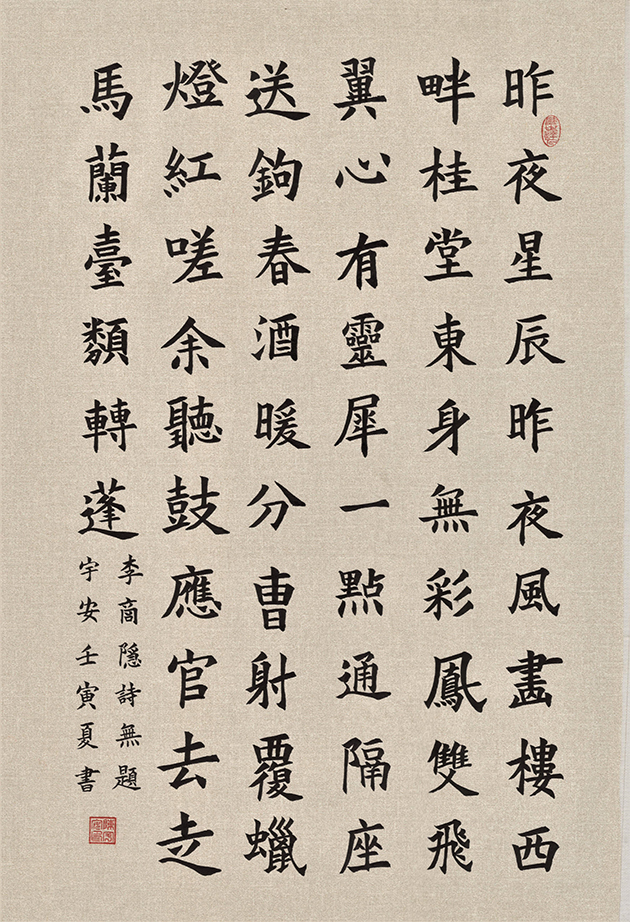 昨夜星辰昨夜風畫樓西
畔桂堂東身無彩鳳雙飛
翼心有靈犀一點通隔座
送鉤春酒暖分曹射覆蠟
燈紅嗟余聽鼓應官去走
馬蘭臺類轉蓬
李商隱詩無題
宇安壬寅夏書